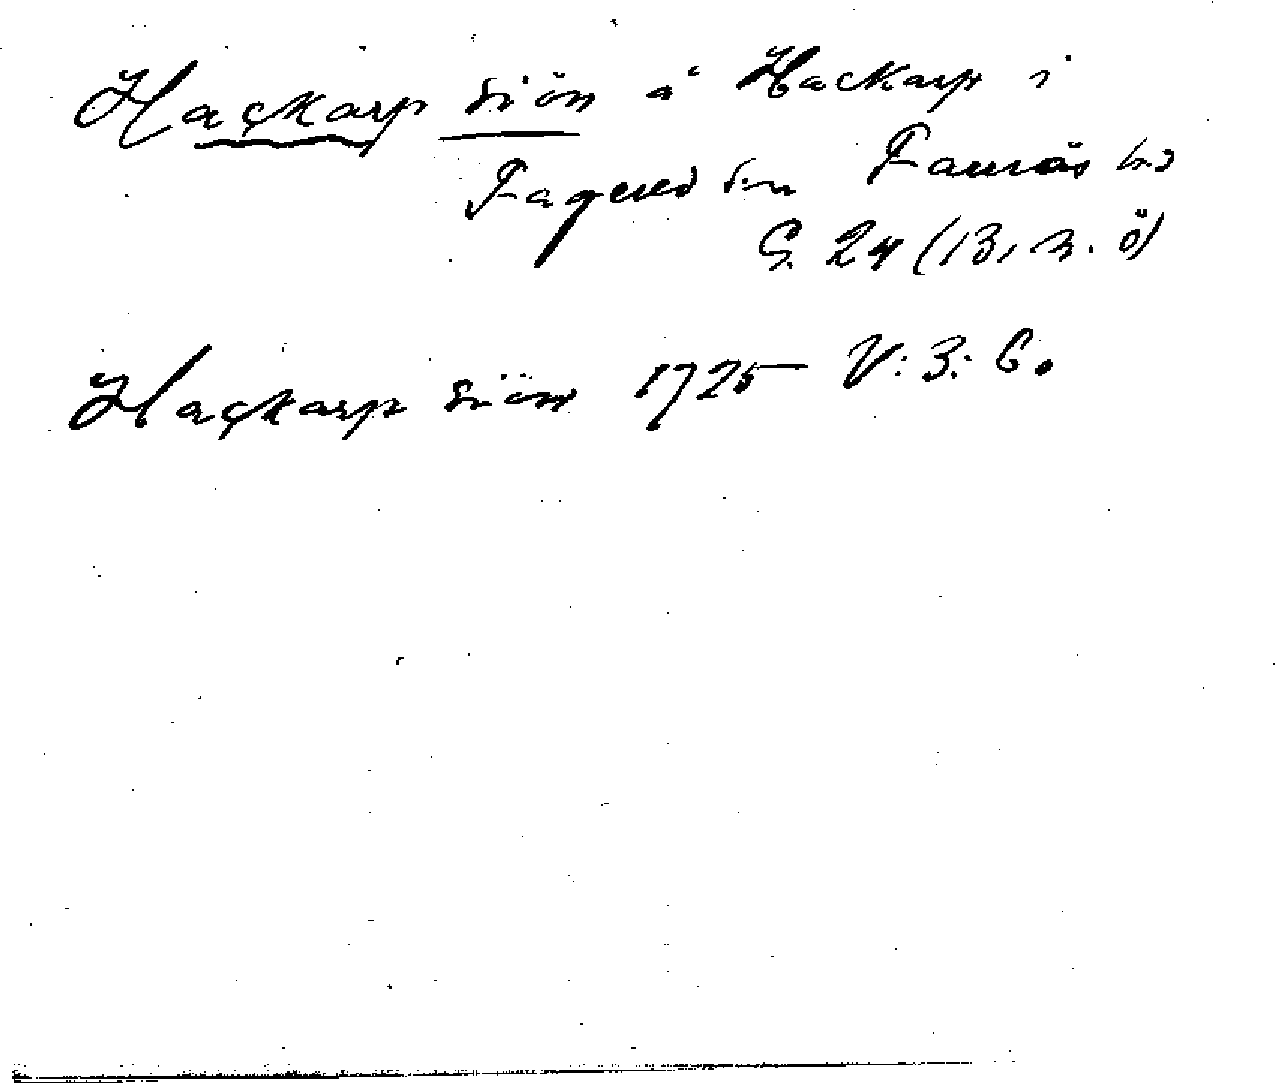 Hackarp siön å Hackarp i
Fagered sn Faurås hd
G. 24 (13, n. ö)
Hackarp siön 1725 V: 3: 6.